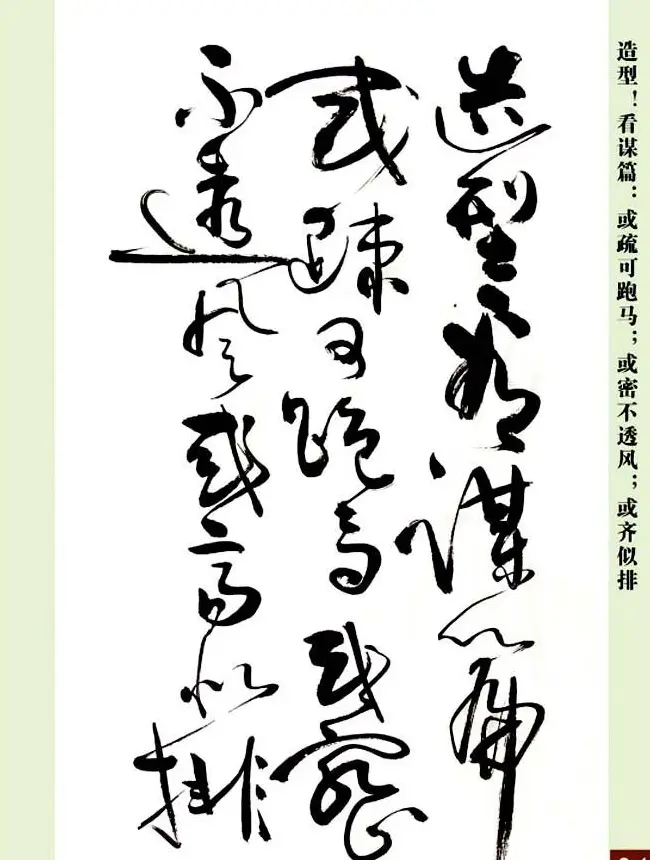 造型！看谋篇：或疏可跑马；或密不透风；或齐似排
造型看谋篇
或疏可跑马或密
不透风或齐似排